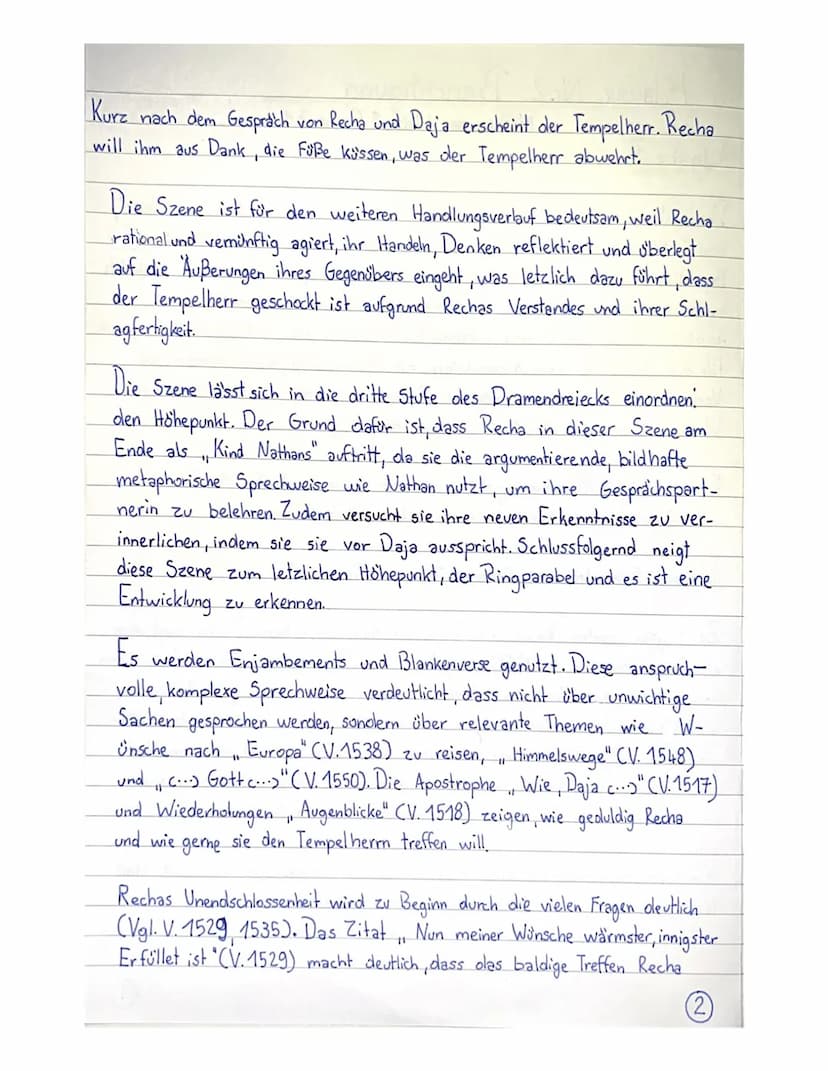 Kurz nach dem Gespräch von Recha und Daja erscheint der Tempelherr. Recha
will ihm aus Dank, die Füße küssen, was der Tempelherr abwehrt.
Die Szene ist für den weiteren Handlungsverlauf bedeutsam, weil Recha
rational und vernünftig agiert, ihr Handeln, Denken reflektiert und überlegt
auf die Äußerungen ihres Gegenübers eingeht, was letzlich dazu führt, dass
der Tempelherr geschockt ist aufgrund Rechas Verstandes und ihrer Schl-
agfertigkeit.
Die Szene lässt sich in die dritte Stufe des Dramendreiecks einordnen:
den Höhepunkt. Der Grund dafür ist, dass Recha in dieser Szene am
Ende als „Kind Nathans" auftritt, da sie die argumentierende, bildhafte
metaphorische Sprechweise wie Nathan nutzt, um ihre Gesprächspart-
nerin zu belehren. Zudem versucht sie ihre neuen Erkenntnisse zu ver-
innerlichen, indem sie sie vor Daja ausspricht. Schlussfolgernd neigt
diese Szene zum letzlichen Höhepunkt, der Ringparabel und es ist eine
Entwicklung zu erkennen.
Es werden Enjambements und Blankenverse genutzt. Diese anspruch-
volle, komplexe Sprechweise verdeutlicht, dass nicht über unwichtige
Sachen gesprochen werden, sondern über relevante Themen wie W-
ünsche nach „Europa" (V. 1538) zu reisen, „Himmelswege" (V. 1548)
und „(...) Gott (...)" (V. 1550). Die Apostrophe „Wie, Daja (...)" (V. 1517)
und Wiederholungen „Augenblicke" (V. 1518) zeigen, wie geduldig Recha
und wie gerne sie den Tempelherrn treffen will.
Rechas Unendschlossenheit wird zu Beginn durch die vielen Fragen deutlich
(Vgl. V. 1529, 1535). Das Zitat „Nun meiner Wünsche wärmster, innigster
Erfüllet ist" (V. 1529) macht deutlich, dass das baldige Treffen Recha
2